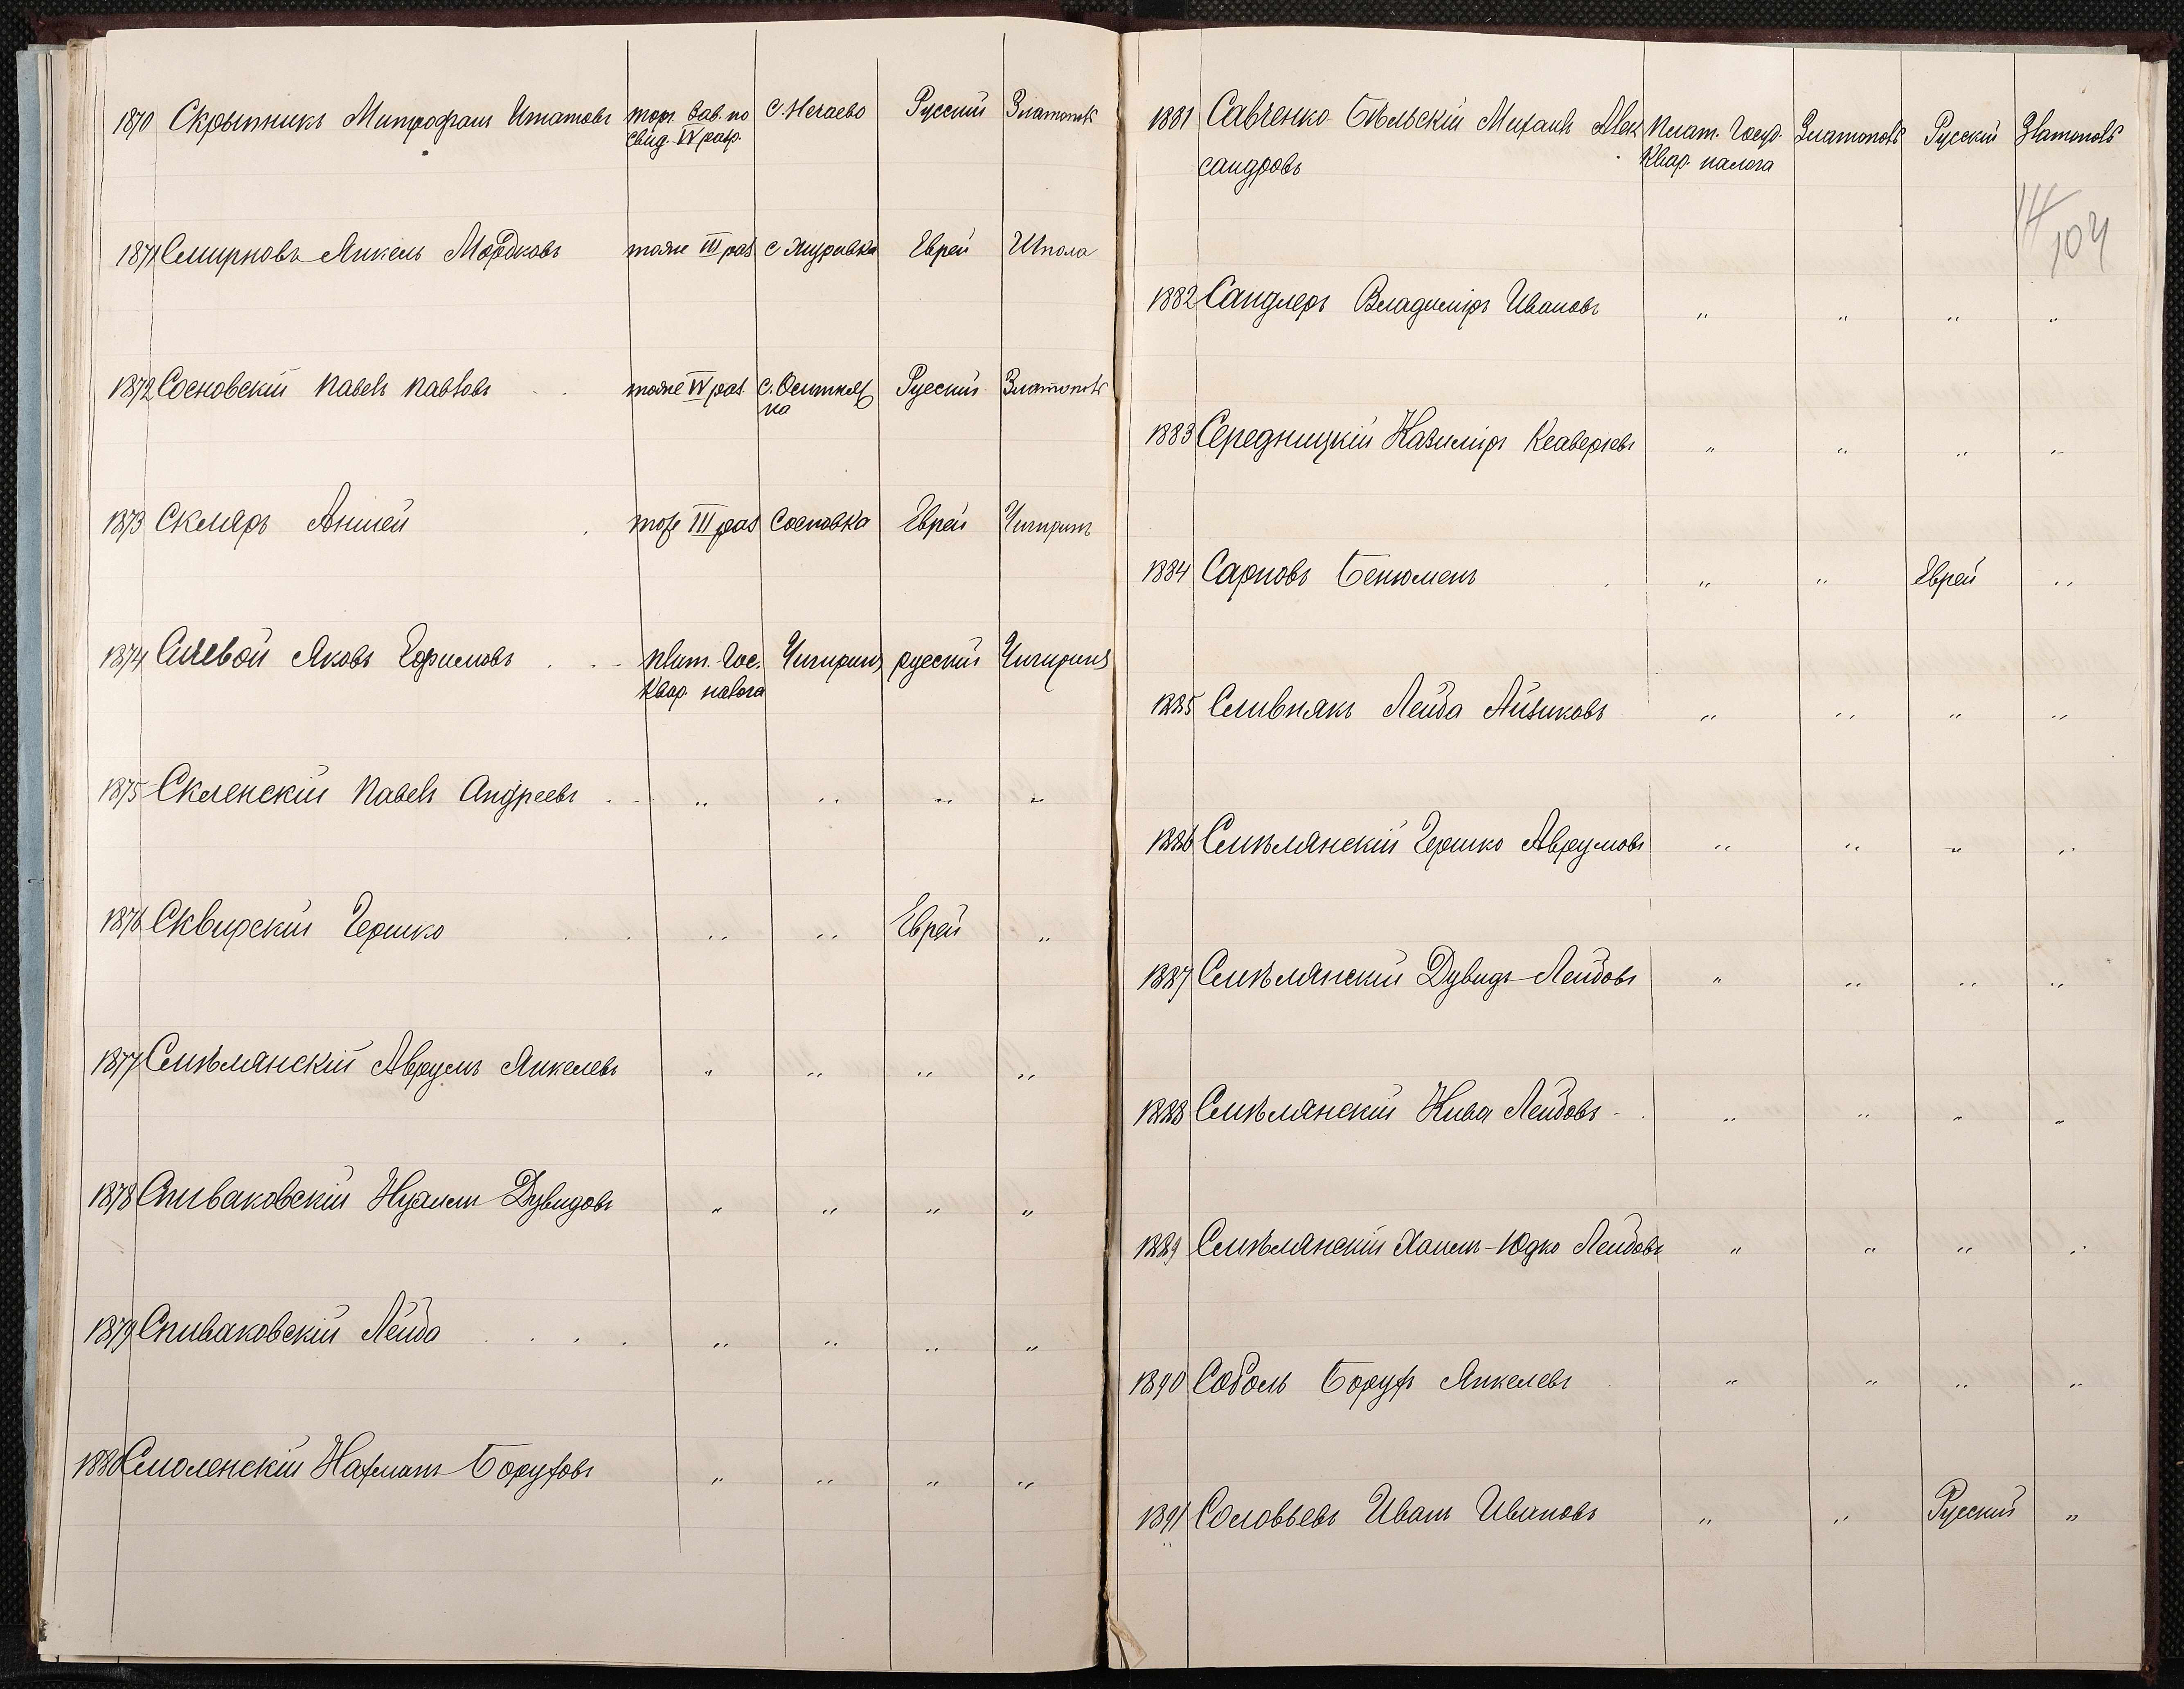 1870 Скрыпникъ Митрофанъ Игнатовъ торг. зав. по с. Нечаево Русский Златополь
свид. IV разр.
1871 Смирновъ Янкель Мордковъ тоже III раз с Журавка Еврей Шпола
1872 Сосновскій Павелъ Павловъ тоже IV раз. С. Оситняж Русский Златополь
ка
1873 Скляръ Аншей тоже III раз Сосновка Еврей Чигиринъ
1874 Яковъ плат. Гос. Чигиринъ русский Чигиринъ
квар. налога
1875 Скленскій Павелъ Андреевъ " " " "
1876 Сквирскій Гершко " " Еврей "
1877 Смѣлянскій Аврумъ Янкелевъ " " " "
1878 Спиваковскій Нухимъ Дувидовъ " " " "
1879 Спиваковскій Лейба " " " "
1880 Смоленскій Нахманъ Боруховъ " " " "
1881 Савченко-Бѣльскій Михаилъ Алек Плат. Госуд. Златополь Русский Златополь
сандровъ квар. налога
104
1882 Сандлеръ Владиміръ Ивановъ " " " "
1883 Середницкій Казиміръ Ксаверіевъ " " " "
1884 Сарновъ Бенюменъ " " Еврей "
1885 Сливнякъ Лейба Айзиковъ " " " "
1886 Смѣлянскій Гершко Аврумовъ " " " "
1887 Смѣлянскій Дувидъ Лейбовъ " " " "
1888 Смѣлянскій Кива Лейбовъ " " " "
1889 Смѣлянскій Хаимъ-Юдко Лейбовъ " " " "
1890 Соболь Борухъ Янкелевъ " " " "
1891 Соловьевъ Иванъ Ивановъ " " Русский "